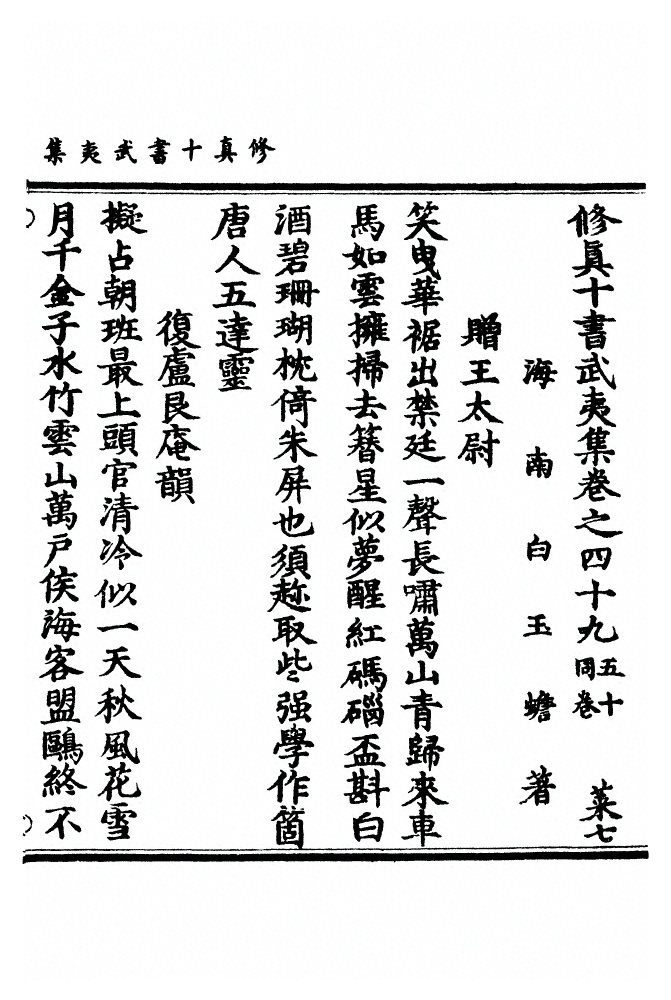 修真十書武夷集
修眞十書武夷集卷之四十九五十同卷 菜七
海南白玉蟾著
贈王太尉
笑曳華裾出禁廷一聲長嘯萬山青歸來車
馬如雲擁掃去簪星似夢醒紅碼碯盃斟白
酒碧珊瑚枕倚朱屏也須趂取些强學作箇
唐人五達靈
復盧艮庵韻
擬占朝班最上頭官清冷似一天秋風花雪
月千金子水竹雲山萬戶侯海客盟鷗終不